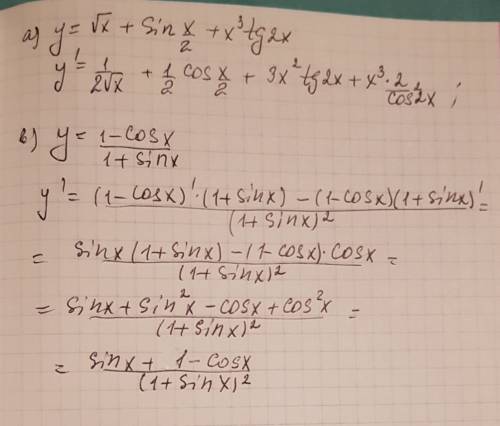 a) y = √x + sin x/2 + x³ tg 2x
y' = 1/(2√x) + 1/2 cos x/2 + 3x² tg 2x + x³ · 2/(cos² 2x) ;
в) y = (1 - cos x)/(1 + sin x)
y' = ((1 - cos x)' · (1 + sin x) - (1 - cos x)(1 + sin x)')/((1 + sin x)²) =
= (sin x (1 + sin x) - (1 - cos x) · cos x)/((1 + sin x)²) =
= (sin x + sin² x - cos x + cos² x)/((1 + sin x)²) =
= (sin x + 1 - cos x)/((1 + sin x)²)